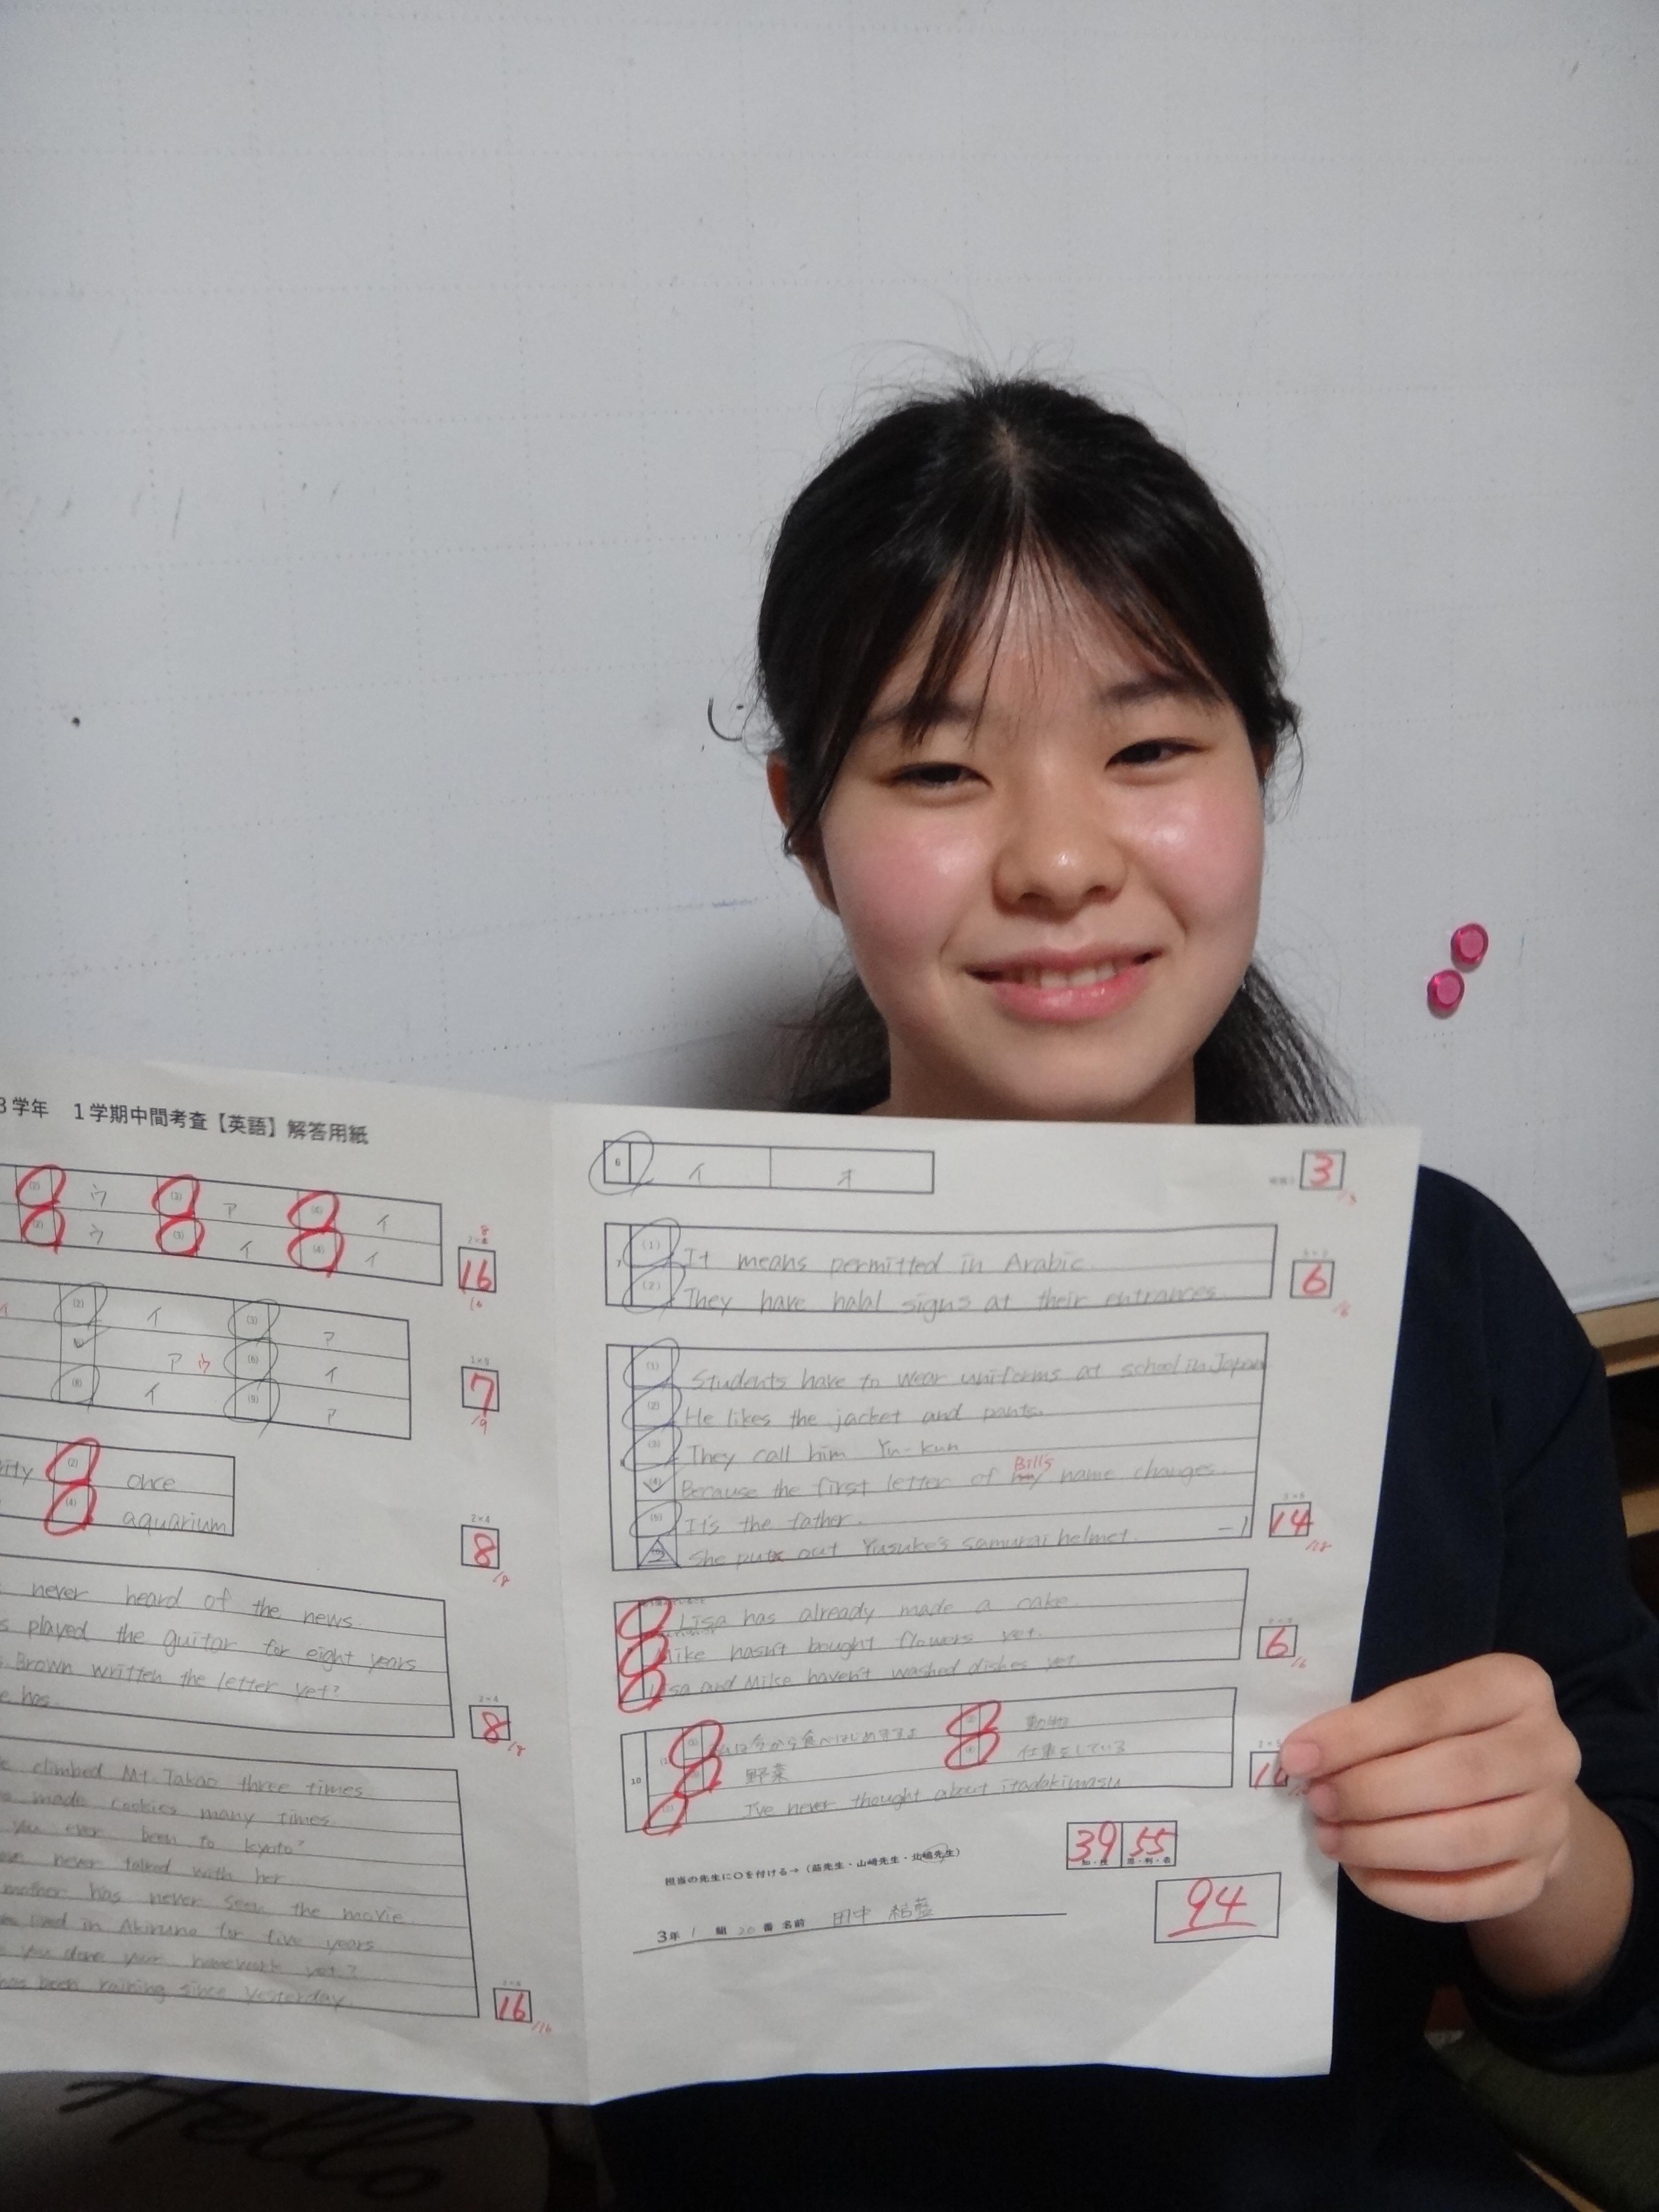 3学年 1学期中間考査【英語】解答用紙
(2) ウ (3) ア (4) イ
(2) ウ (3) イ (4) イ
16
(2) イ (3) ア
ア ウ (6) イ
(8) イ (9) ア
7
/9
(2) once
(4) aquarium
2×4
8
/8
never heard of the news.
played the guitar for eight years
Brown written the letter yet?
has.
2×4
8
/8
climbed Mt. Takao three times.
made cookies many times.
you ever been to Kyoto?
never talked with her.
mother has never seen the movie.
lived in Akiruno for five years.
you done your homework yet?
has been raining since yesterday.
16
/16
6 イ オ
3
/3
(1) It means permitted in Arabic.
(2) They have halal signs at their entrances.
6
/6
(1) Students have to wear uniforms at school in Japan
(2) He likes the jacket and pants.
(3) They call him Yu-kun
Bill's
(4) Because the first letter of my name changes.
(5) It's the father.
She put out Yusuke's samurai helmet. -1
14
/18
Lisa has already made a cake
Mike hasn't bought flowers yet.
Lisa and Mike haven't washed dishes yet.
6
/6
10 私は今から食べはじめますよ 動物
野菜 仕事をしている
I've never thought about itadakimasu
担当の先生に○を付ける→（茹先生・山崎先生・北嶋先生）
39 55
知・技 思・判・表
94
3年 1 組 20 番 名前 田中
Hello